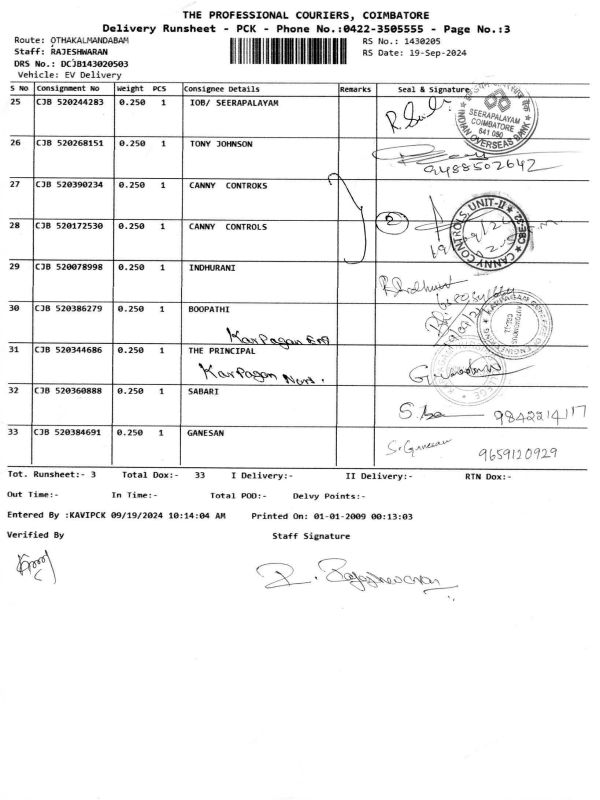 THE PROFESSIONAL COURIERS, COIMBATORE
Delivery Runsheet - PCK - Phone No.:0422-3505555 - Page No.:3
Route: OTHAKALMANDABAM
RS No.: 1430205
Staff: RAJESHWARAN
RS Date: 19-Sep-2024
DRS No.: DCJB143020503
Vehicle: EV Delivery
S No Consignment No Weight PCS Consignee Details Remarks Seal & Signature
25 CJB 520244283 0.250 1 IOB/ SEERAPALAYAM
INDIAN OVERSEAS BANK
SEERAPALAYAM
COIMBATORE
641 050
26 CJB 520268151 0.250 1 TONY JOHNSON
9488502642
27 CJB 520390234 0.250 1 CANNY CONTROKS
28 CJB 520172530 0.250 1 CANNY CONTROLS
2
CANNY CONTROLS, UNIT-II
29 CJB 520078998 0.250 1 INDHURANI
30 CJB 520386279 0.250 1 BOOPATHI
Karpagam
31 CJB 520344686 0.250 1 THE PRINCIPAL
Karpagam Nurs.
32 CJB 520360888 0.250 1 SABARI
9842214117
33 CJB 520384691 0.250 1 GANESAN
S. Ganesan 9659120929
Tot. Runsheet:- 3 Total Dox:- 33 I Delivery:- II Delivery:- RTN Dox:-
Out Time:- In Time:- Total POD:- Delvy Points:-
Entered By :KAVIPCK 09/19/2024 10:14:04 AM Printed On: 01-01-2009 00:13:03
Verified By Staff Signature
R. Rajeshwaran